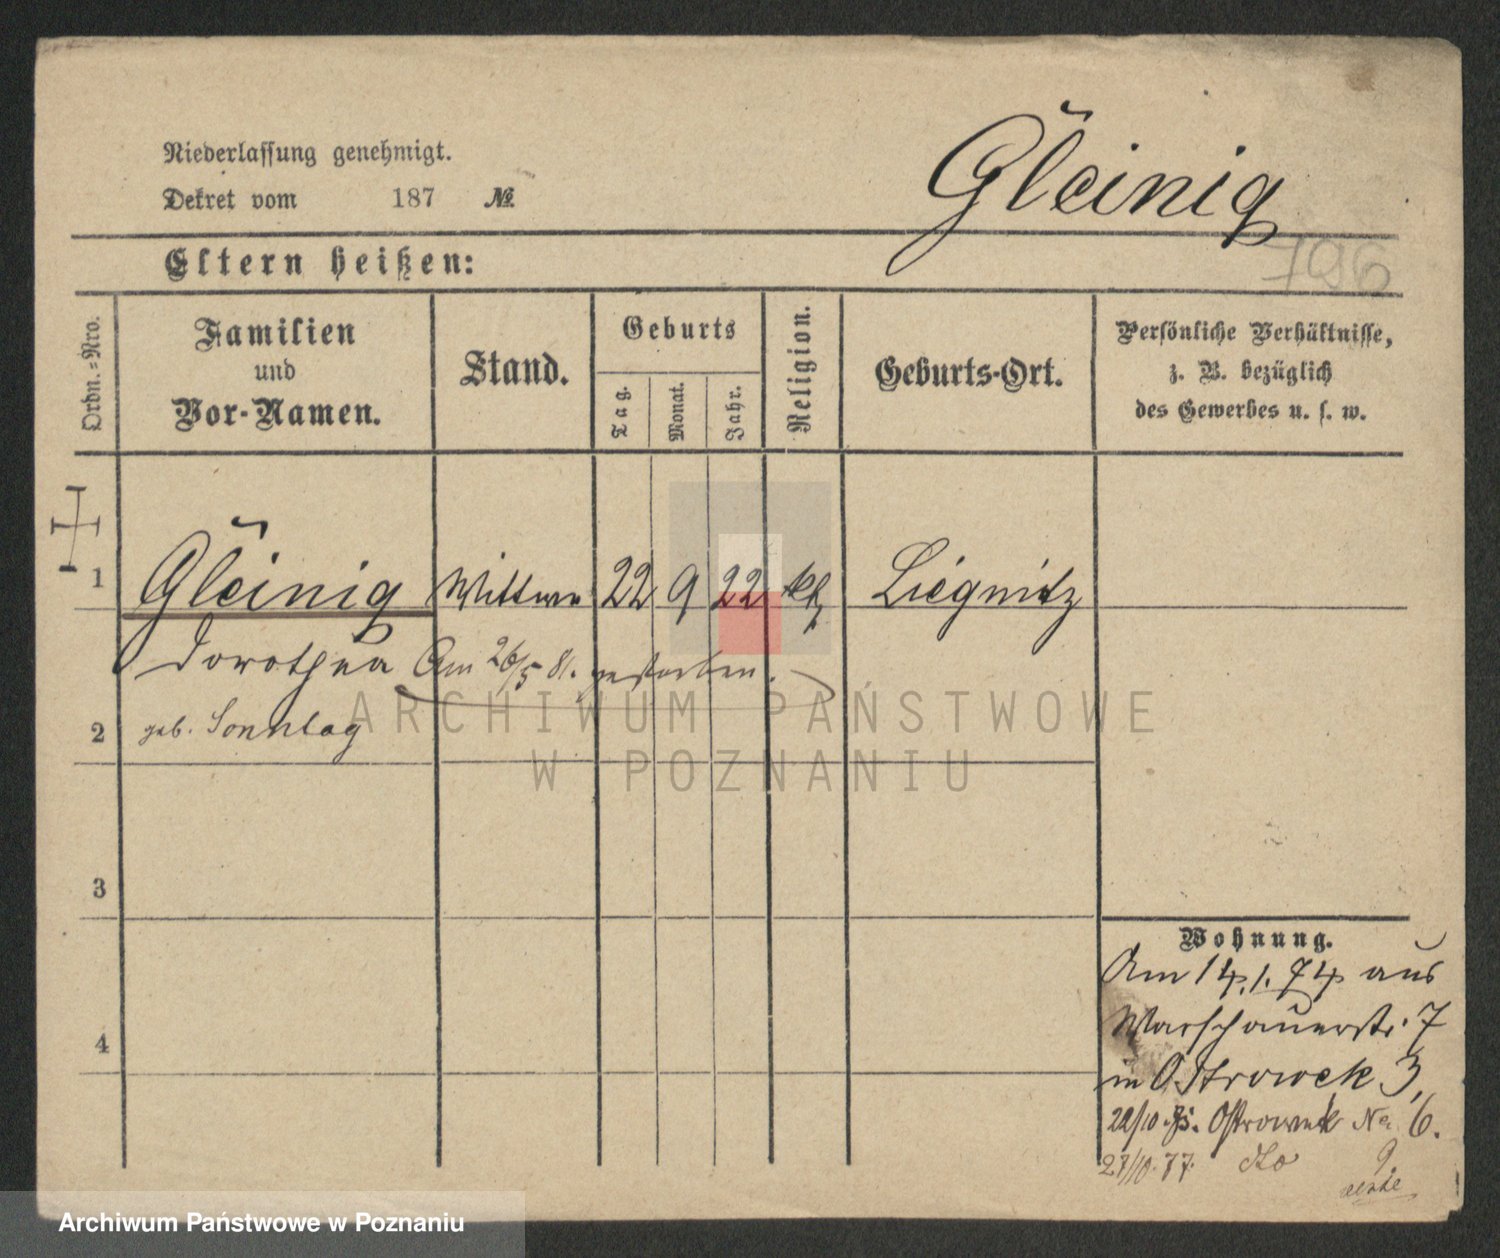 Niederlassung genehmigt.
Dekret vom 187 №
Gleinig
196
Eltern heißen:
Ordn.=Nro.
Familien
und
Vor-Namen.
Stand.
Geburts
Tag.
Monat.
Jahr.
Religion.
Geburts-Ort.
Persönliche Verhältnisse,
z. B. bezüglich
des Gewerbes u. s. w.
1 Gleinig Wittwe 22 9 22 kth Liegnitz
Dorothea Am 26/5 81. gestorben.
2 geb. Sonntag
3
4
Wohnung.
Am 14.1.74 aus
Warschauerstr. 7
in Ostrowek 3,
22/10. 75. Ostrowek No 6.
27/10. 77. dto 9.
ARCHIWUM PAŃSTWOWE
W POZNANIU
Archiwum Państwowe w Poznaniu